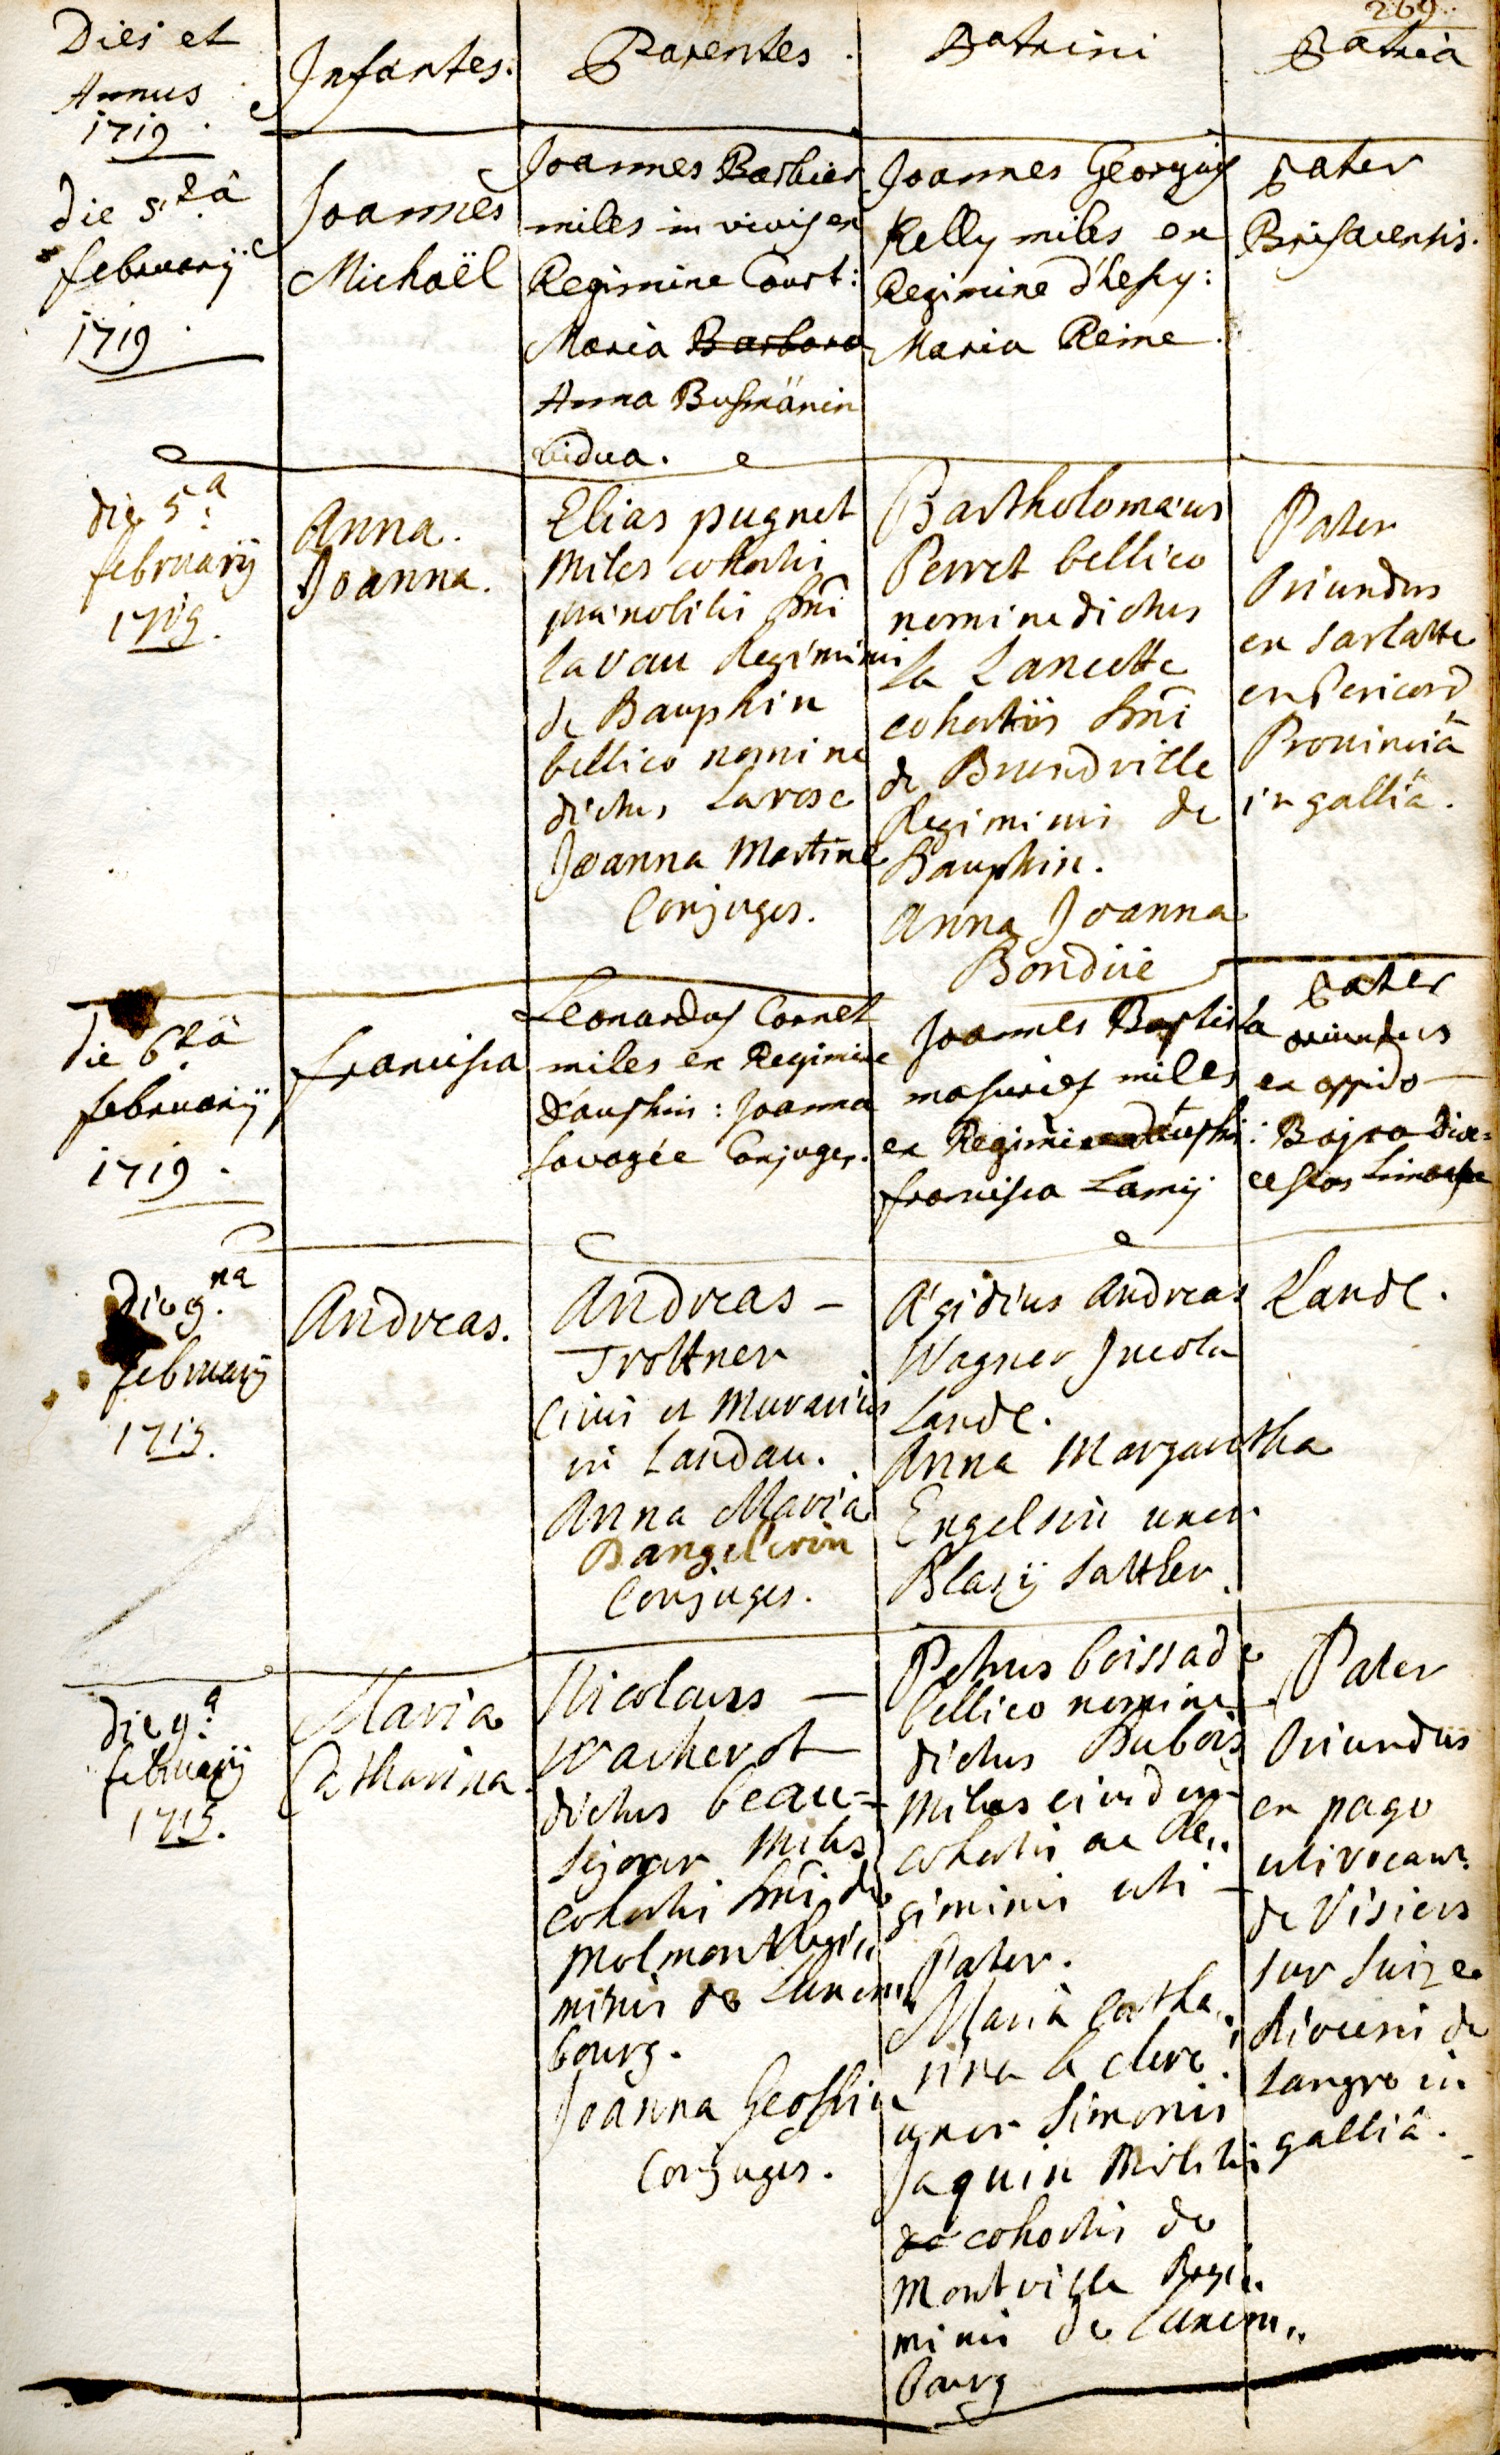 269.
Dies et
Annus
1719.
Infantes.
Parentes.
Patrini
Patria
die 5.tâ
februarij
1719.
Joannes
Michaël
Joannes Barbier
miles in vivis ex
Regimine Court:
Maria Barbara
Anna Busmänin
vidua.
Joannes Georgius
Kelly miles ex
Regimine d'hessy:
Maria Reine.
Pater
Brisacensis.
die 5.a
februarij
1719.
Anna.
Joanna.
Elias pugnet
Miles cohortis
prænobilis Dni
lavau Regiminis
de Dauphin
bellico nomine
dictus Larose
Joanna Martine
Conjuges.
Bartholomæus
Perret bellico
nomine dictus
la Lancette
cohortis Dni
de Brundville
Regiminis de
Dauphin.
Anna Joanna
Bondüe
Pater
Oriundus
ex sarlatte
en Pericord
Provinciâ
in galliâ.
die 6.tâ
februarij
1719.
francisca
Leonardus Cornet
miles ex Regimine
d'auphin: Joanna
Savagée Conjuges.
Joannes Baptista
masurier miles
ex Regimine dauphi:
francisca Lamij
Pater
oriundus
ex oppido
Bojra Diœ=
cesios
die 9.na
februarij
1719.
Andreas.
Andreas
Trottner
Civis et Murarius
in Landau.
Anna Maria
Dangelerin
Conjuges.
Ægidius Andreas
Wagner Incola
Landæ.
Anna Margaretha
Engelsin uxor
Blasij Sattler.
Landæ.
die 9.a
februarij
1719.
Maria
Catharina.
Nicolaus
Wacherot
dictus beau=
sejour Miles
cohortis Dni de
Molmont Regi"
minis de Luxem"
bourg.
Joanna Geoffrin
Conjuges.
Petrus boissade
bellico nomine
dictus Dubois
Miles eiusdem
cohortis ac Re"
giminis uti
Pater.
Maria Catha"
rina le clerc
uxor Simonis
Jaquin Militis
de cohortis de
Montville Regi"
minis de Luxem"
bourg
Pater
Oriundus
ex pago
uti vocant
de Visiers
sur Suize
diœcesis de
Langre in
galliâ.